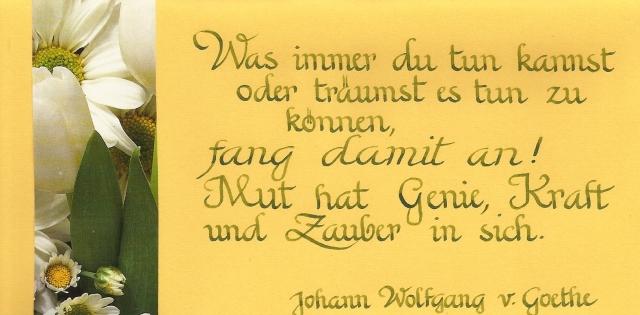 Was immer du tun kannst
oder träumst es tun zu
können,
fang damit an!
Mut hat Genie, Kraft
und Zauber in sich.
Johann Wolfgang v. Goethe